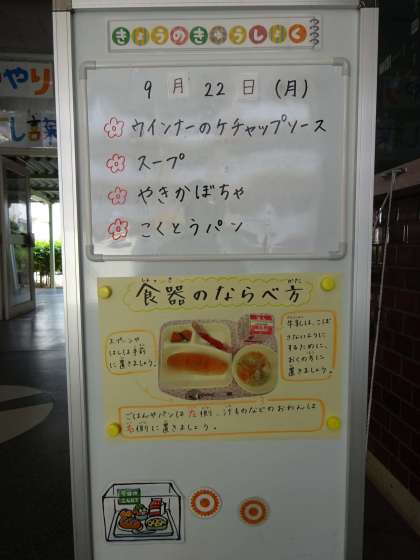 きょうのきゅうしょく
9月22日(月)
ウインナーのケチャップソース
スープ
やきかぼちゃ
こくとうパン
食器のならべ方
スプーンや
はしは手前
に置きましょう。
牛乳は、こぼ
さないように
するために、
おくの方に
置きましょう。
ごはんやパンは左側、汁ものなどのおわんは
右側に置きましょう。